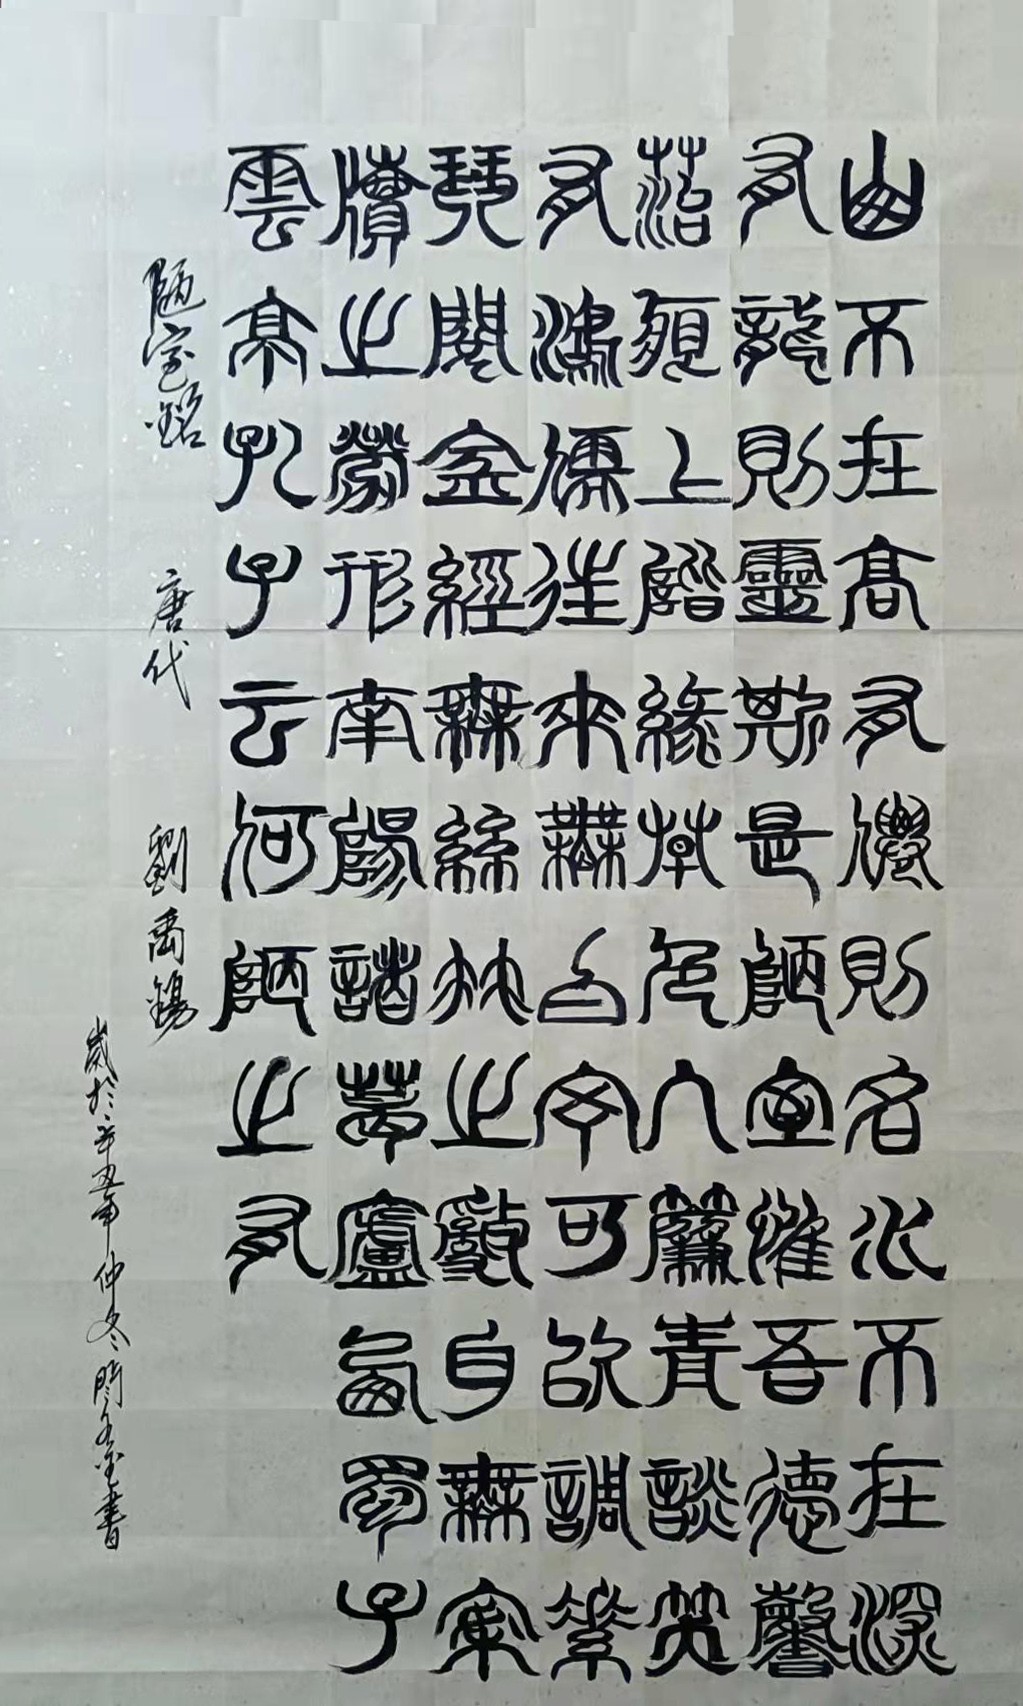 山不在高有僊則名水不在深
有龍則靈斯是陋室惟吾德馨
菭痕上階綠草色入簾青談笑
有鴻儒往來無白丁可以調素
琴閱金經無絲竹之亂耳無案
牘之勞形南陽諸葛廬西蜀子
雲亭孔子云何陋之有
陋室銘 唐代 劉禹錫
歲於辛丑年仲冬書